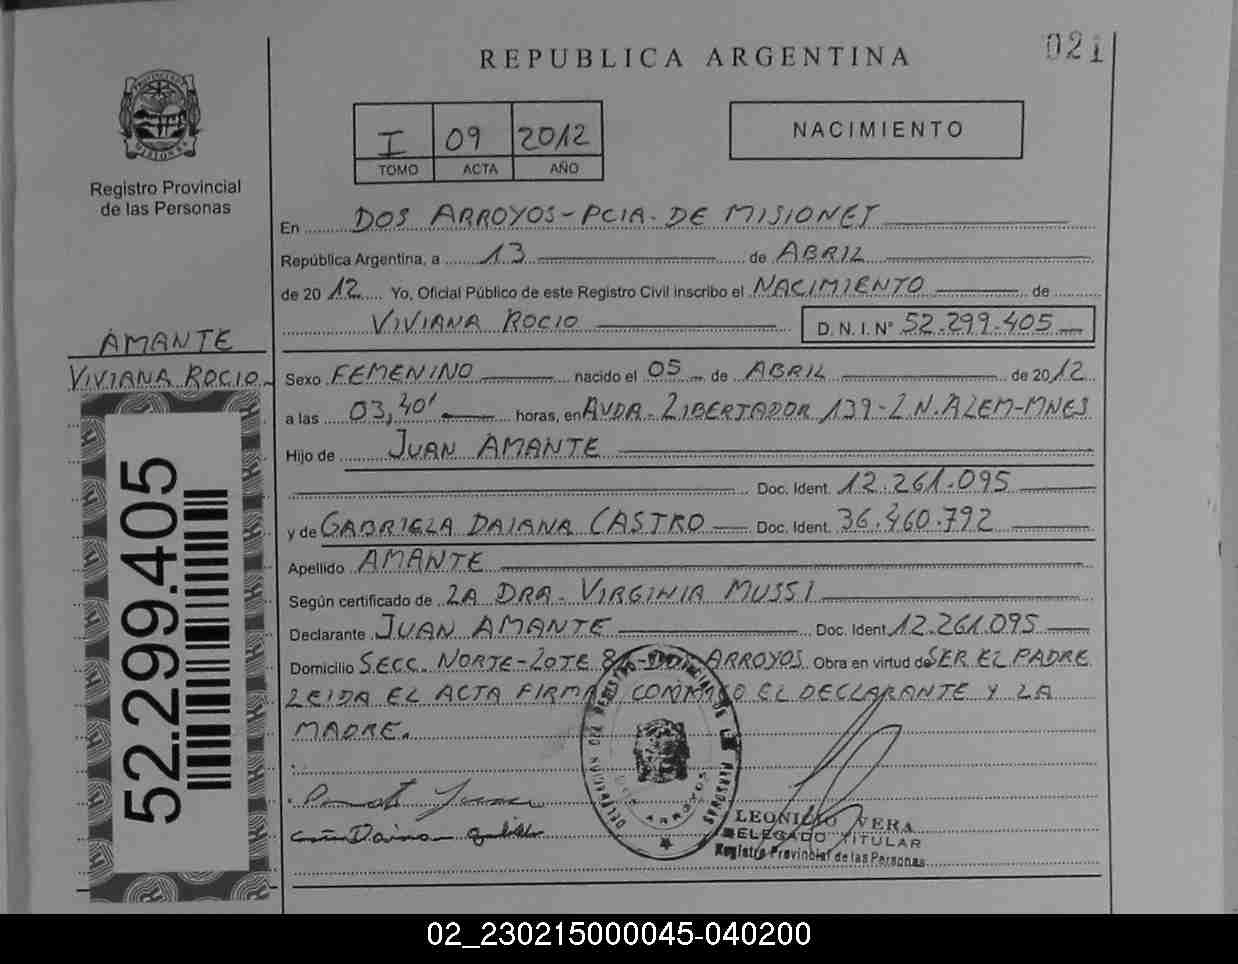 REPUBLICA ARGENTINA
021
I 09 2012
TOMO ACTA AÑO
NACIMIENTO
PROVINCIA DE MISIONES
Registro Provincial
de las Personas
En DOS ARROYOS - PCIA. DE MISIONES
República Argentina, a 13 de ABRIL
de 2012 Yo, Oficial Público de este Registro Civil inscribo el NACIMIENTO de
VIVIANA ROCIO D. N. I. N° 52.299.405
AMANTE
VIVIANA ROCIO
Sexo FEMENINO nacido el 05 de ABRIL de 2012
a las 03,40' horas, en AVDA. LIBERTADOR 139 - L.N. ALEM - MNES
Hijo de JUAN AMANTE
Doc. Ident. 12.261.095
y de GABRIELA DAIANA CASTRO Doc. Ident. 36.460.792
Apellido AMANTE
Según certificado de LA DRA. VIRGINIA MUSSI
Declarante JUAN AMANTE Doc. Ident. 12.261.095
Domicilio SECC. NORTE - LOTE ARROYOS Obra en virtud de SER EL PADRE
LEIDA EL ACTA FIRMAN CONMIGO EL DECLARANTE Y LA
MADRE.
52.299.405
DELEGACION DEL REGISTRO PROVINCIAL DE LAS PERSONAS
DOS ARROYOS
LEONICIO VERA
DELEGADO TITULAR
Registro Provincial de las Personas
02_230215000045-040200